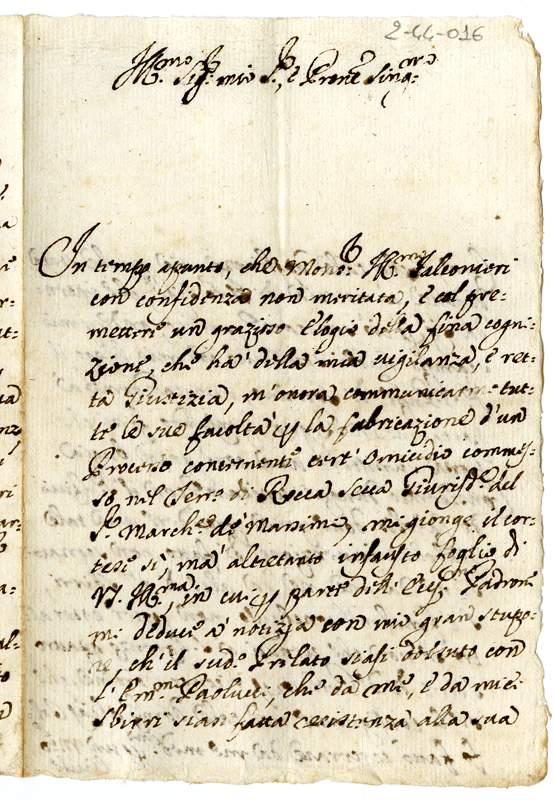 2-44-016
Ill.mo Sig.r mio S.r, e Prone Sing.mo
In tempo apunto, che Mons.r Ill.mo Falconieri
con confidenza non meritata, e col pre-
mettere un grazioso elogio della fina cogni-
zione, che ha' della mia vigilanza, e ret-
ta Giustizia, m'onora communicarmi tut-
te le sue facolta' p la fabricazione d'un
Processo concernente cert' omicidio commes-
so nel Terr.o di Rocca Secca Giurisd.e del
S.r March.e de Massimi, mi gionge il cor-
tese si, ma' altretanto infausto foglio di
V.S. Ill.ma, in cui p parte dell' Ecc.mo Padrone
mi deduce a' notizia con mio gran stupo-
re, ch' il sud.o Prelato siasi doluto con
l' Em.mo Paolucci, che da me, e da miei
sbirri siasi fatta resistenza alla sua